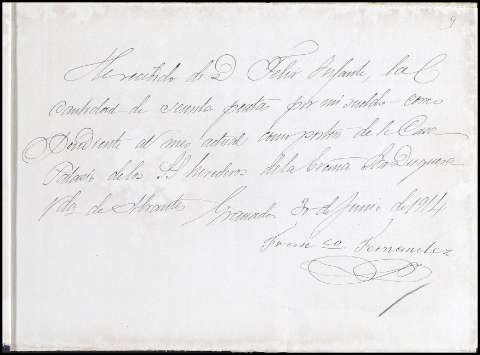 9
He recibido de D Felix Infante, la
cantidad de pesetas por mi sueldo como
al mes actual como portero de la Casa
Palacio de los SS herederos de la Excma Sra Duquesa
Vda de Abrantes Granada 30 de Junio de 1914
Francisco Fernandez